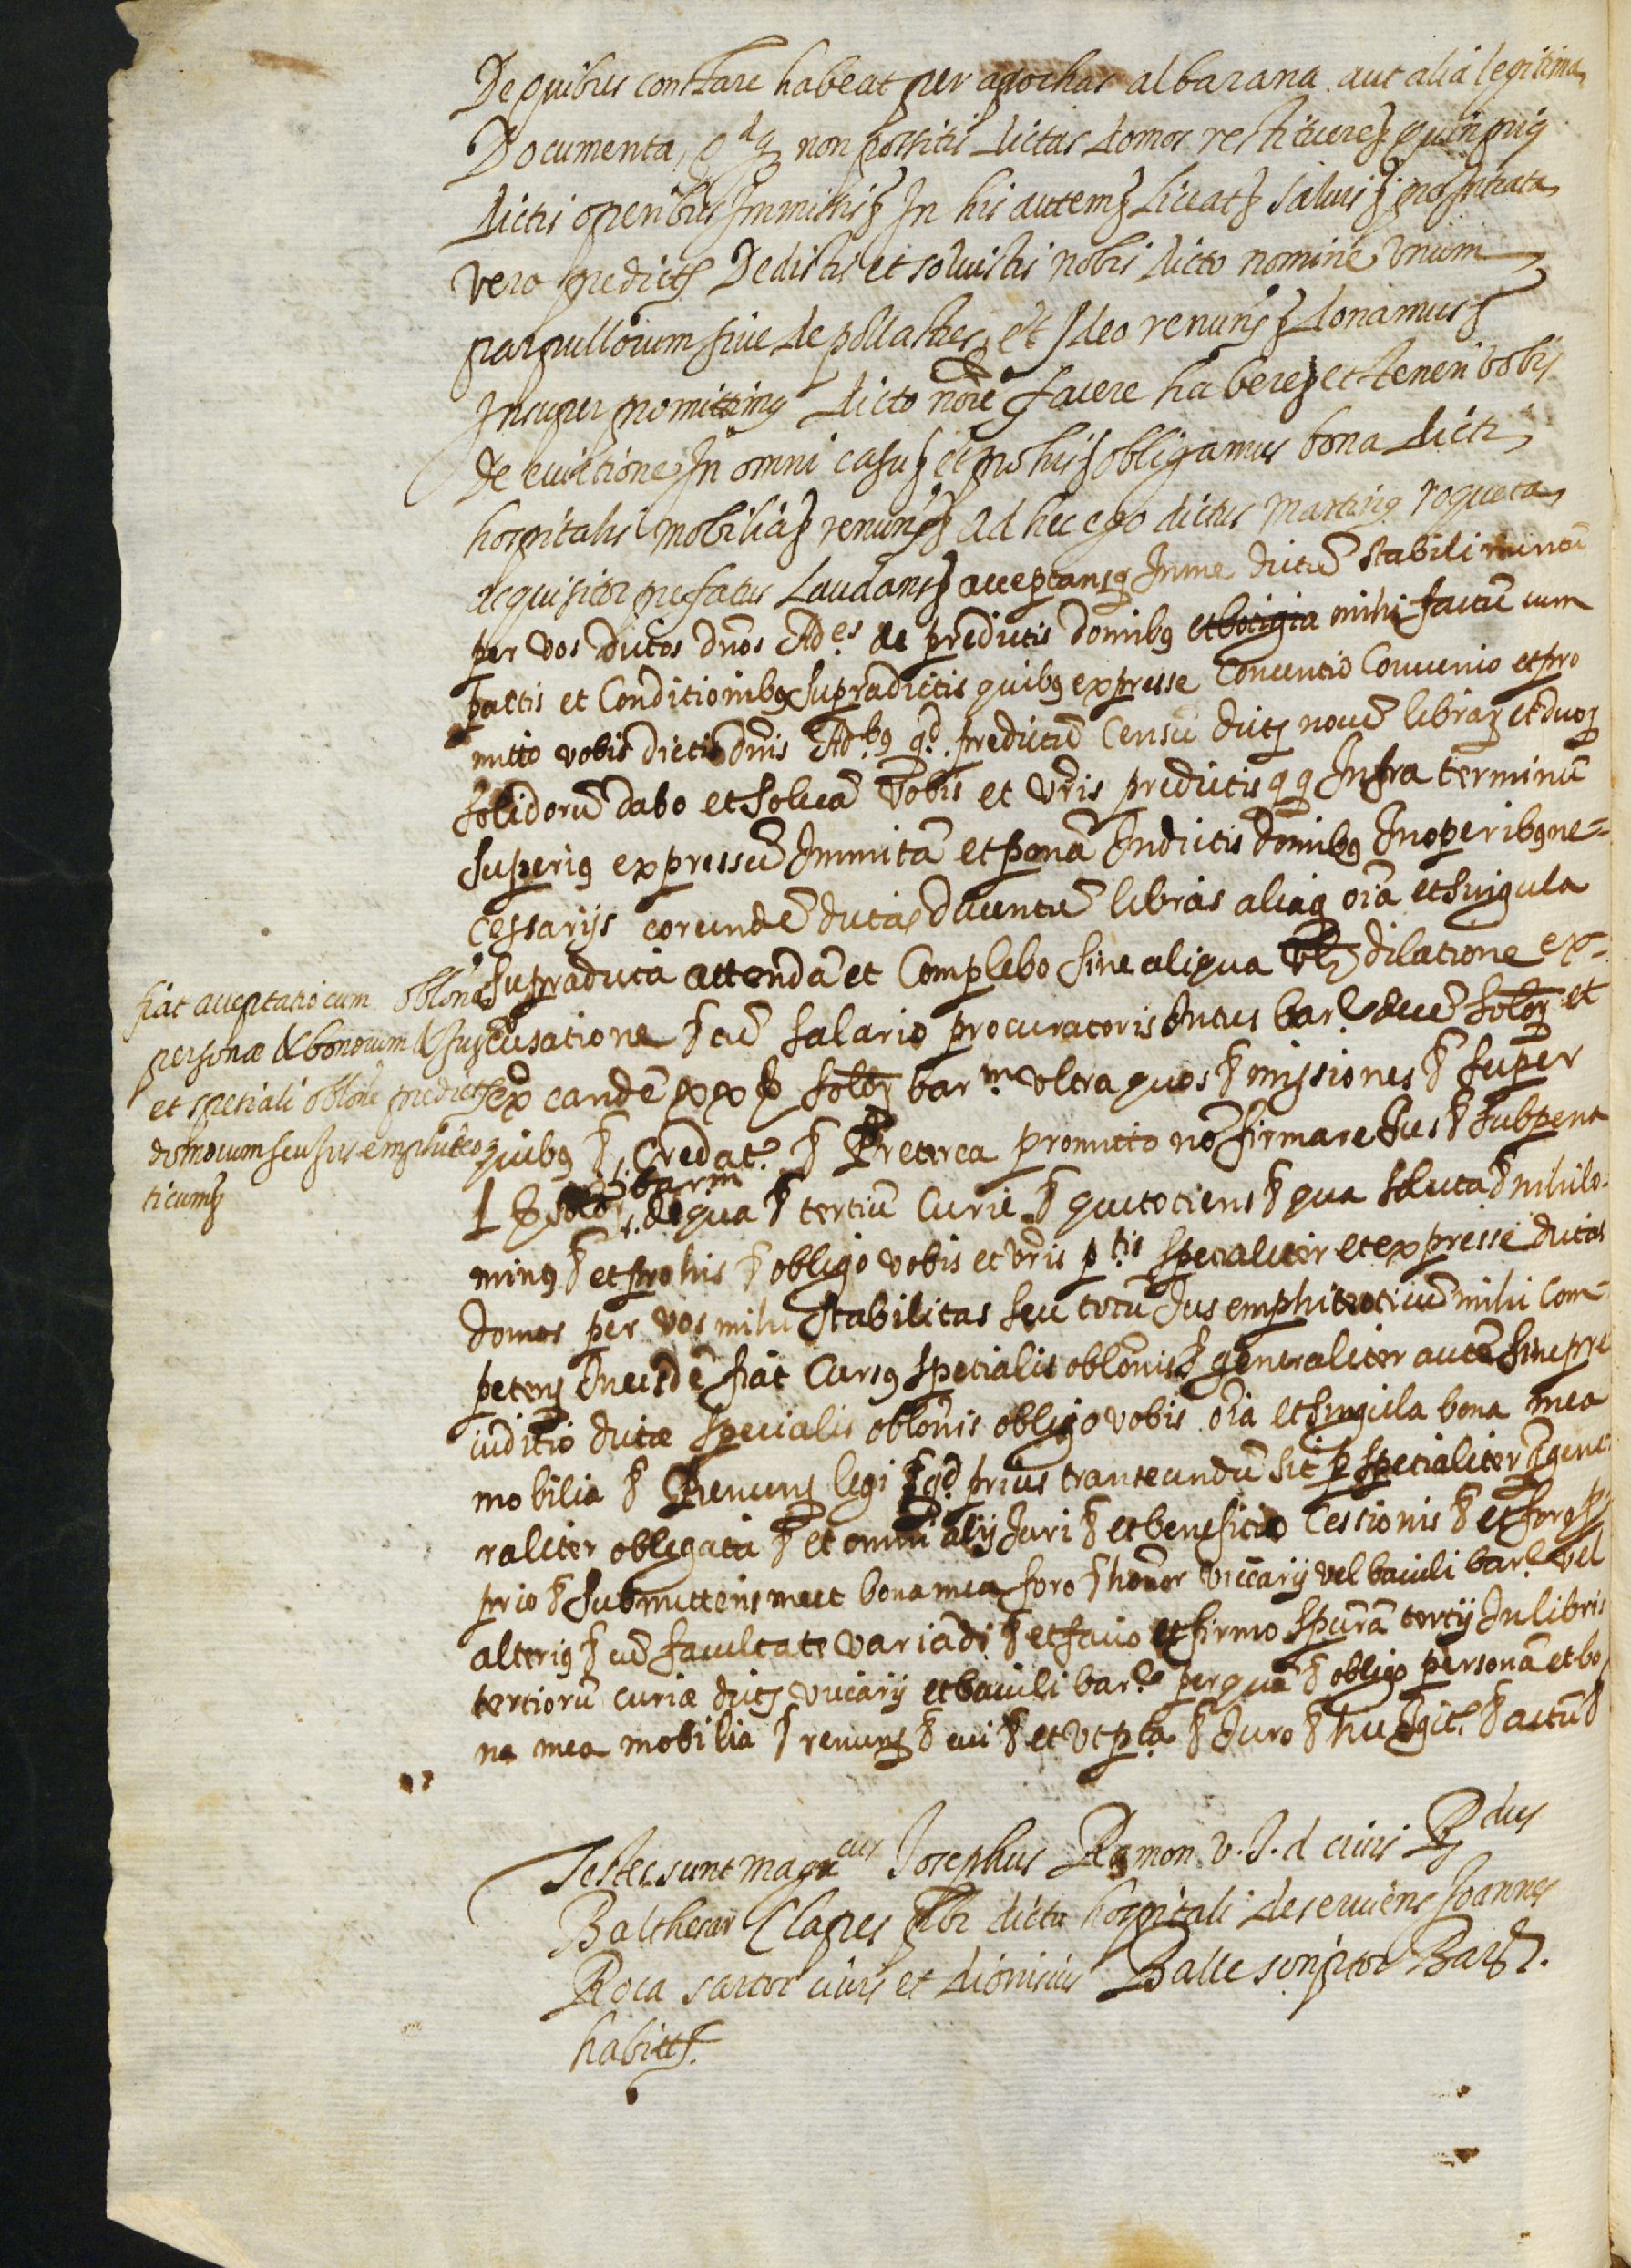 De quibus constare habeat per apochas albarana aut alia legitima
Documenta, qdq non possitis dictas domos restituere quin prius
dictis operibus Immissis In his autem liceat salvis pro Intrata
vero predicta Dedistis et solvistis nobis dicto nomine unum
par pullorum sive de pollastres, et Ideo renuns donamus
Insuper promittimus dicto noie facere habere et teneri vobis
De evictione In omni casu et pro his obligamus bona dicti
hospitalis mobilia renuns Ad hec ego dictus Martinus roqueta
acquisitor prefatus Laudans acceptansq In me dictu stabilimentu
per vos dictos dnos Ad.es de predictis domibus et botigia mihi factu cum
pactis et Conditionibus supradictis quibus expresse Consentio Convenio et pro
mitto vobis dictis dnis Ad.bus qd predictu Censu dictar novem librar et duor
solidoru dabo et solvam vobis et vris predictis qq Infra terminu
superius expressu Immitam et ponam In dictis domibus In operibus ne=
cessarijs eorunde dictas ducentu libras aliaq oia et singula
supradicta attendam et Complebo sine aliqua vll dilatione ex=
cusatione cu salario procuratoris Intus bar.e decem solor et
extra eande xx solor bar.m ultra quos missiones super
quibus Credat. Preterea promitto no firmare Jus sub pena
L solor. barm de qua tertiu Curie qui totiens qua soluta nihilo-
minus et pro his obligo vobis et vris p.tis specialiter et expresse dictas
domos per vos mihi stabilitas seu totu Jus emphiteoticum mihi Com=
petens In eisde fiat Cursus specialis oblonis generaliter aute sine pre
iuditio dictæ specialis oblonis obligo vobis oia et singula bona mea
mobilia Renuns legi qd prius transeundu sit p specialiter q gene
raliter obligata et omni alij Juri et beneficio Cessionis et foro p
prio submittens me et bona mea foro honor vicarij vel baiuli bar.e vel
alterius cu facultate variadi et facio et firmo spuram tertij In libris
tertioru curiæ dictor vicarij et baiuli bar.e per qua obligo persona et bo
na mea mobilia renuns cui et ut p.ta Juro actu
fiat acceptatio cum oblone
personæ & bonorum & Jus
et spetiali oblone predictar
domorum seu Juris emphiteo
ticum
Testes sunt magcus Josephus Ramon v.J.d civis Rdus
Balthesar Clapes pbr dicto hospitali deserviens Joannes
Roca sartor civis et dionisius Balle scriptor Bar.e
habitts.